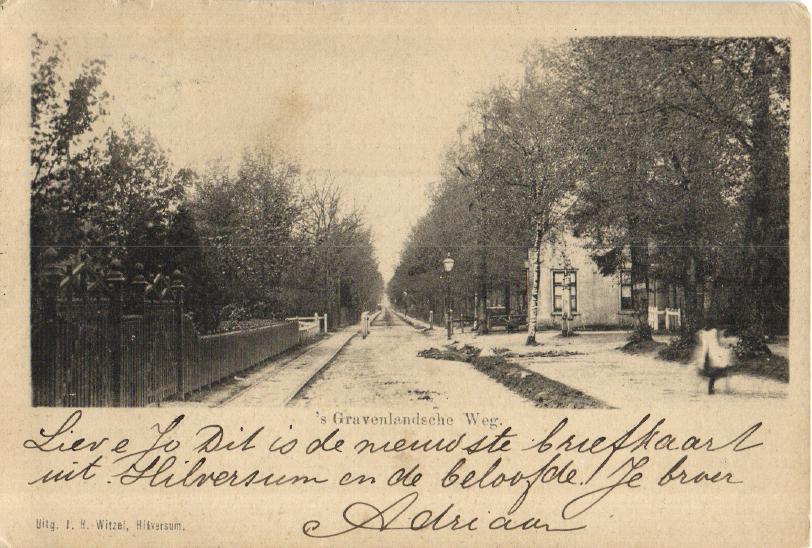 's Gravenlandsche Weg.
Lieve Jo Dit is de nieuwste briefkaart
uit Hilversum en de beloofde! Je broer
Adriaan
Uitg. J. H. Witzel, Hilversum.